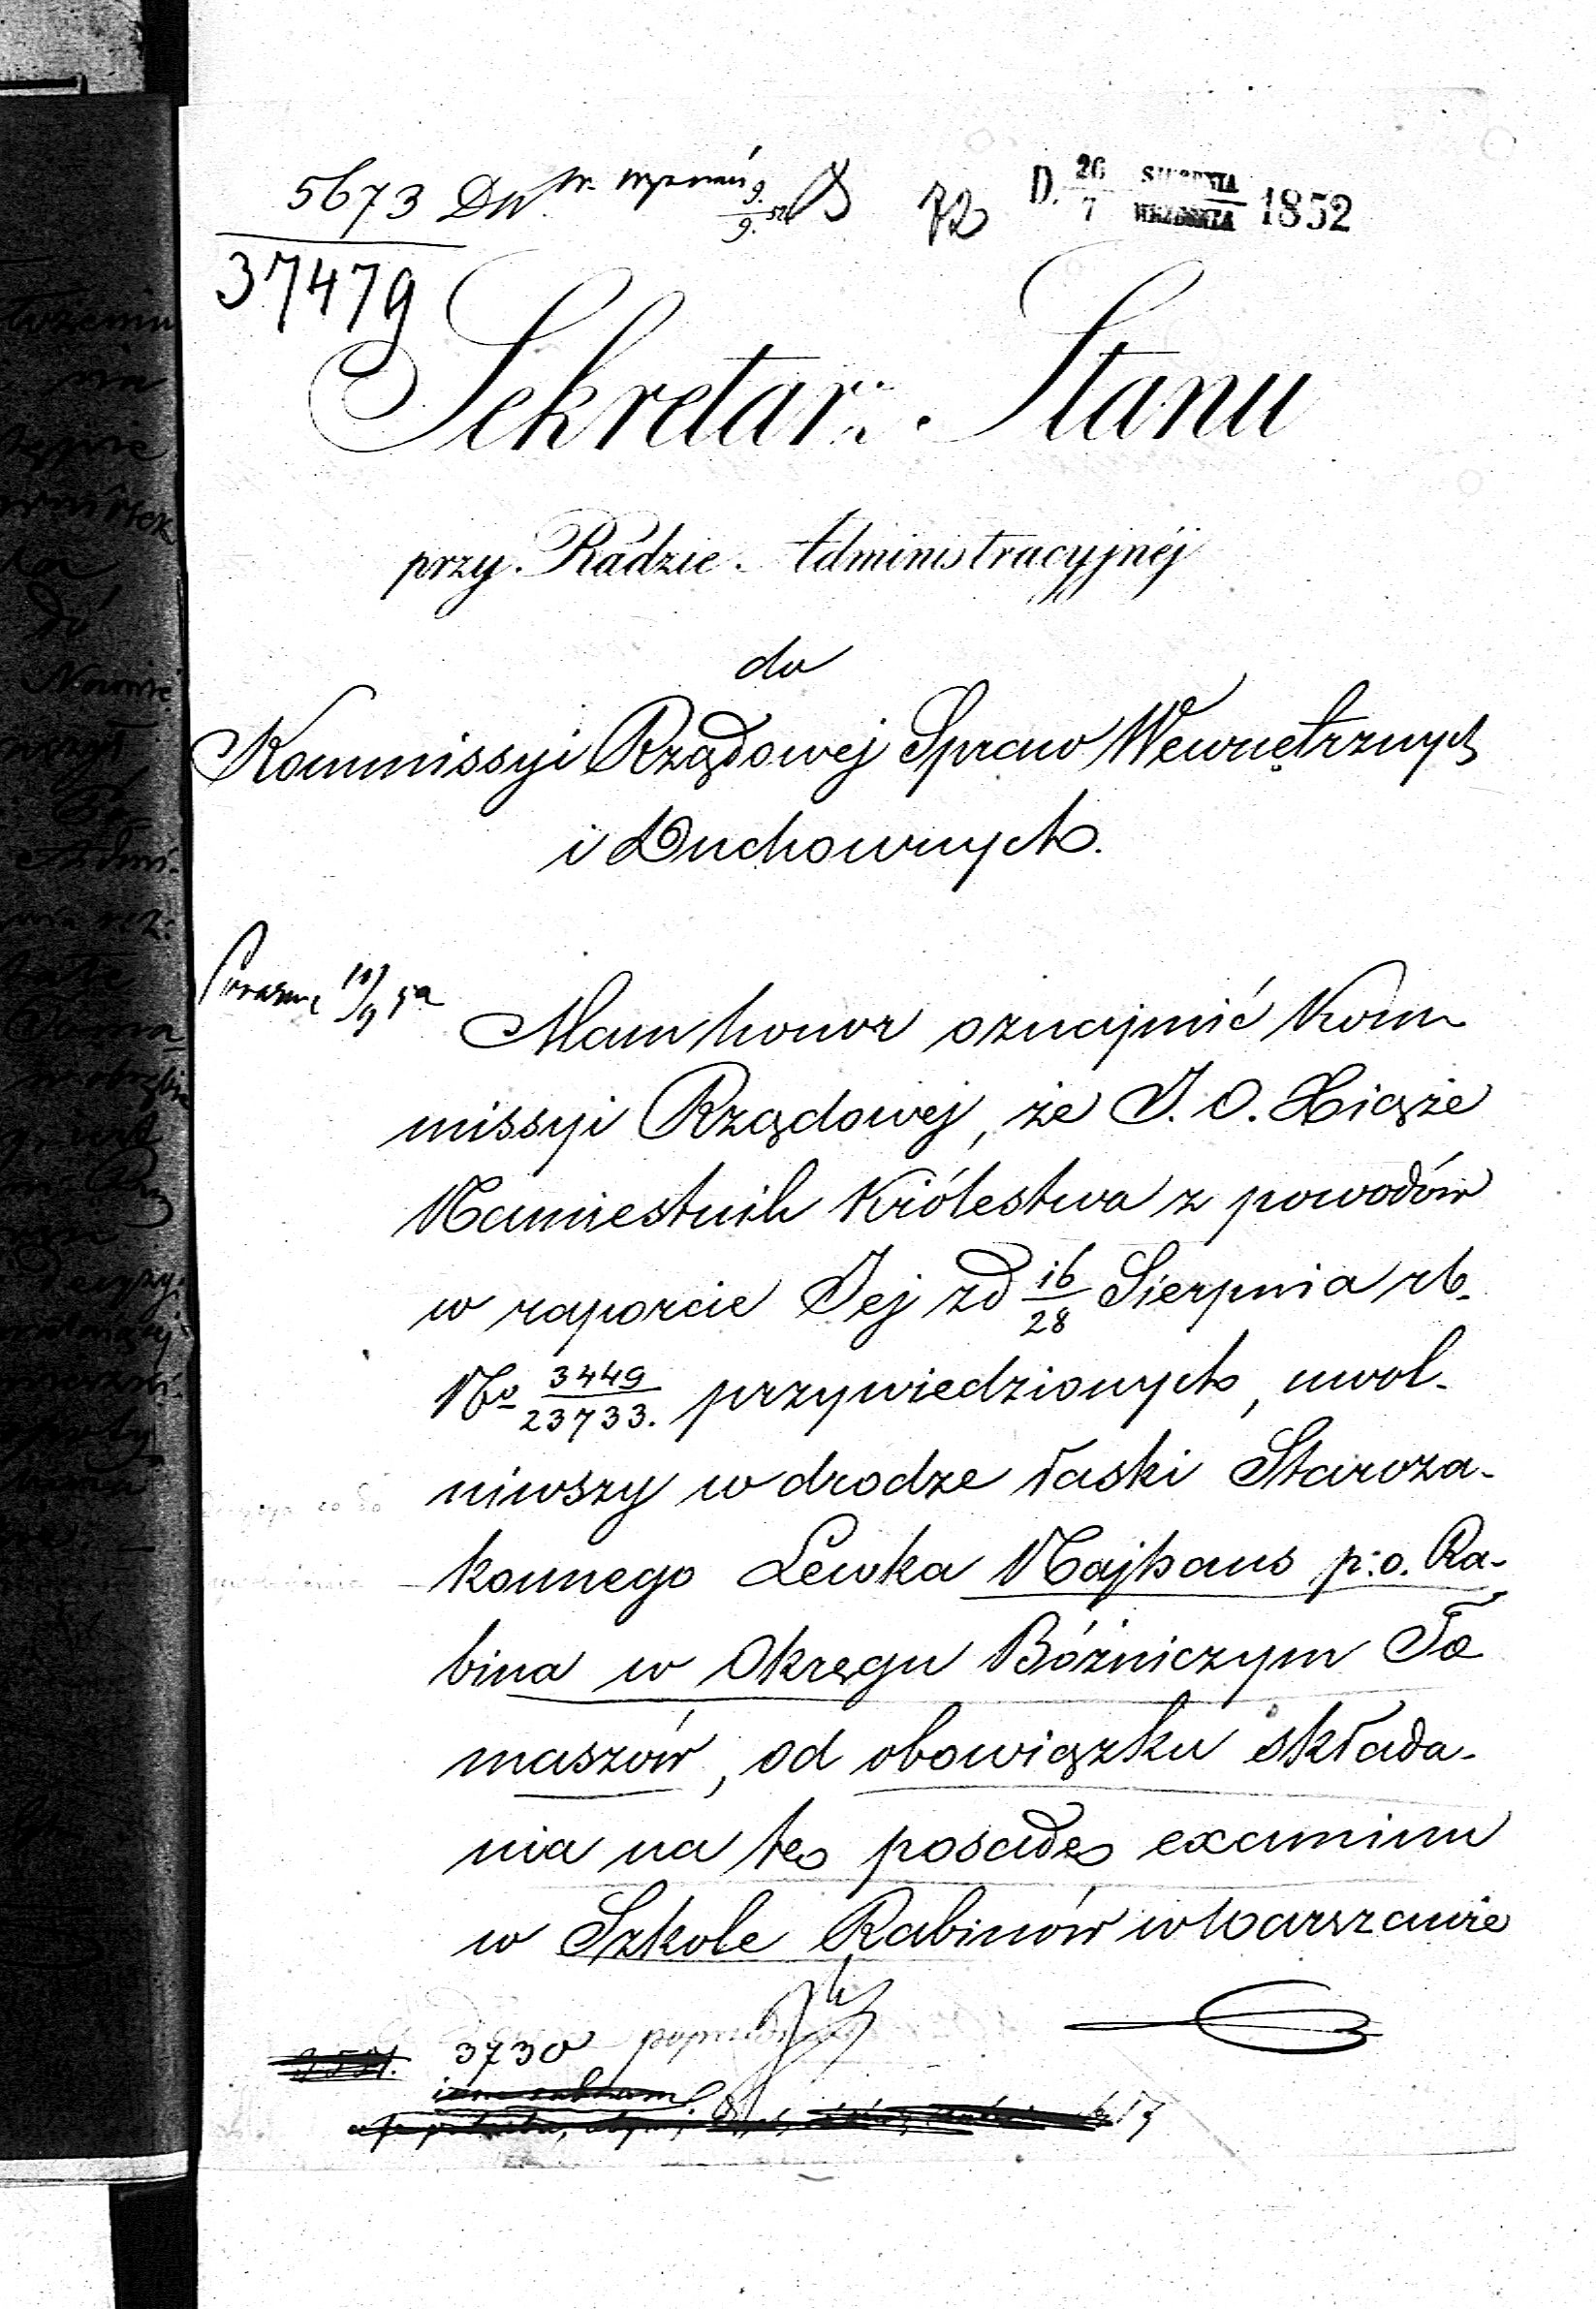 5673 DW.
37479
72
D. 26/7 SIERPNIA/WRZEŚNIA 1852
Sekretarz Stanu
przy Radzie Administracyjnéj
do
Kommissyi Rządowej Spraw Wewnętrznych
i Duchownych.
Mam honor oznajmić Kom
missyi Rządowej, że J. O. Xiąże
Namiestnik Królestwa z powodów
w raporcie Jej zd 16/28 Sierpnia rb.
No 3449/23733. przywiedzionych, uwol-
niwszy w drodze łaski Staroza-
konnego Lewka Najhaus p:o. Ra-
bina w Okręgu Bóżniczym To
maszów, od obowiązku składa-
nia na tę posadę examinu
w Szkole Rabinów w Warszawie
3730